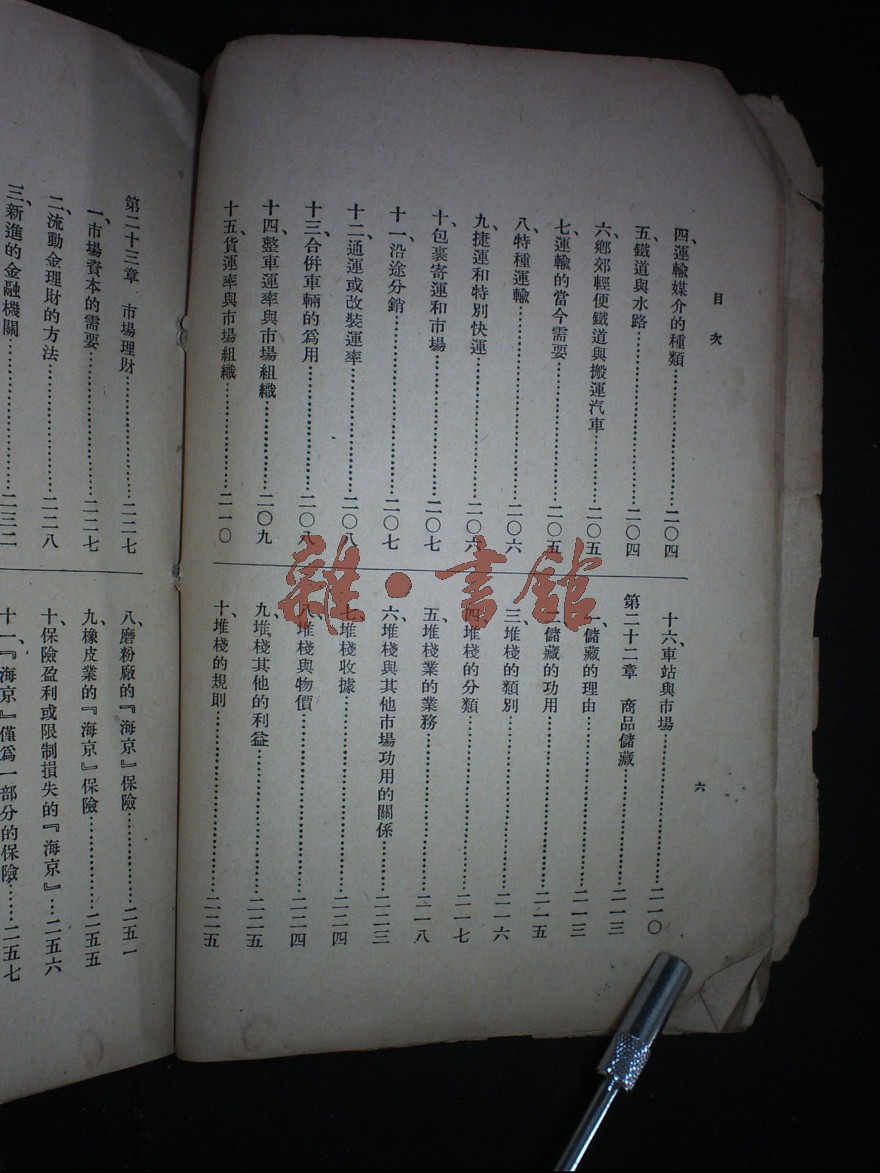 目次
四、運輸媒介的種類……二〇四
五、鐵道與水路……二〇四
六、鄉郊輕便鐵道與搬運汽車……二〇五
七、運輸的當今需要……二〇五
八、特種運輸……二〇六
九、捷運和特別快運……二〇六
十、包裹寄運和市場……二〇七
十一、沿途分銷……二〇七
十二、通運或改裝運率……二〇八
十三、合併車輛的爲用……二〇八
十四、整車運率與市場組織……二〇九
十五、貨運率與市場組織……二一〇
十六、車站與市場……二一〇
第二十二章 商品儲藏……二一三
一、儲藏的理由……二一三
二、儲藏的功用……二一五
三、堆棧的類別……二一六
四、堆棧的分類……二一七
五、堆棧業的業務……二一八
六、堆棧與其他市場功用的關係……二二三
七、堆棧收據……二二四
八、堆棧與物價……二二四
九、堆棧其他的利益……二二五
十、堆棧的規則……二二五
六
第二十三章 市場理財……二二七
一、市場資本的需要……二二七
二、流動金理財的方法……二二八
三、新進的金融機關……二三二
八、磨粉廠的『海京』保險……二五一
九、橡皮業的『海京』保險……二五五
十、保險盈利或限制損失的『海京』…二五六
十一、『海京』僅爲一部分的保險……二五七
雜·書館